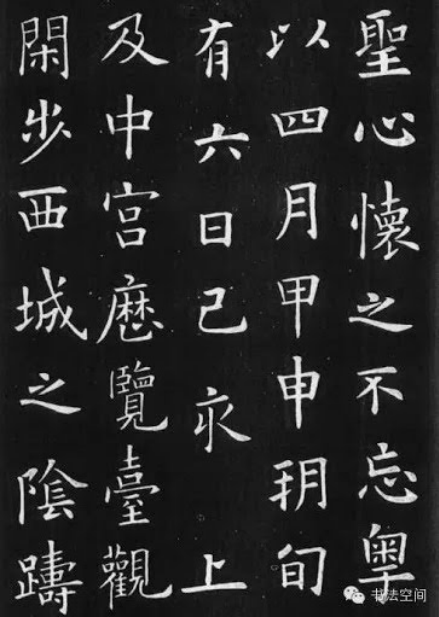 聖心懷之不忘粵
以四月甲申朔旬
有六日己亥上
及中宮歷覽臺觀
閑步西城之陰躊
书法空间